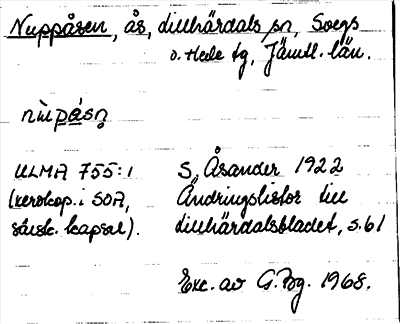 Nuppåsen, ås, Lillhärdals sn, Svegs
o. Hede tg, Jämtl. län.
nùpásn̥
ULMA 755:1 S. Åsander 1922
(xerokop. i SOA, Ändringslistor till
särsk. kapsel). Lillhärdalsbladet, s. 61
Exc. av G. Bg. 1968.